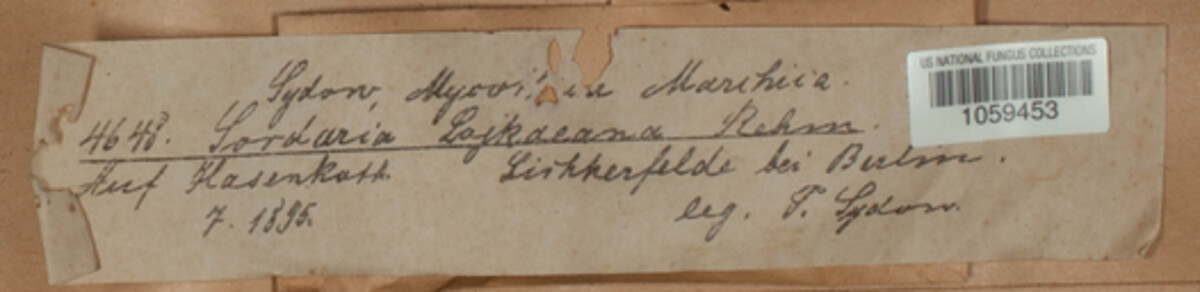 Sydow, Marchica.
4648. Sordaria Lojkaeana Rehm.
Auf Hasenkoth. Lichterfelde bei Berlin.
7. 1895. leg. P. Sydow.
US NATIONAL FUNGUS COLLECTIONS
1059453